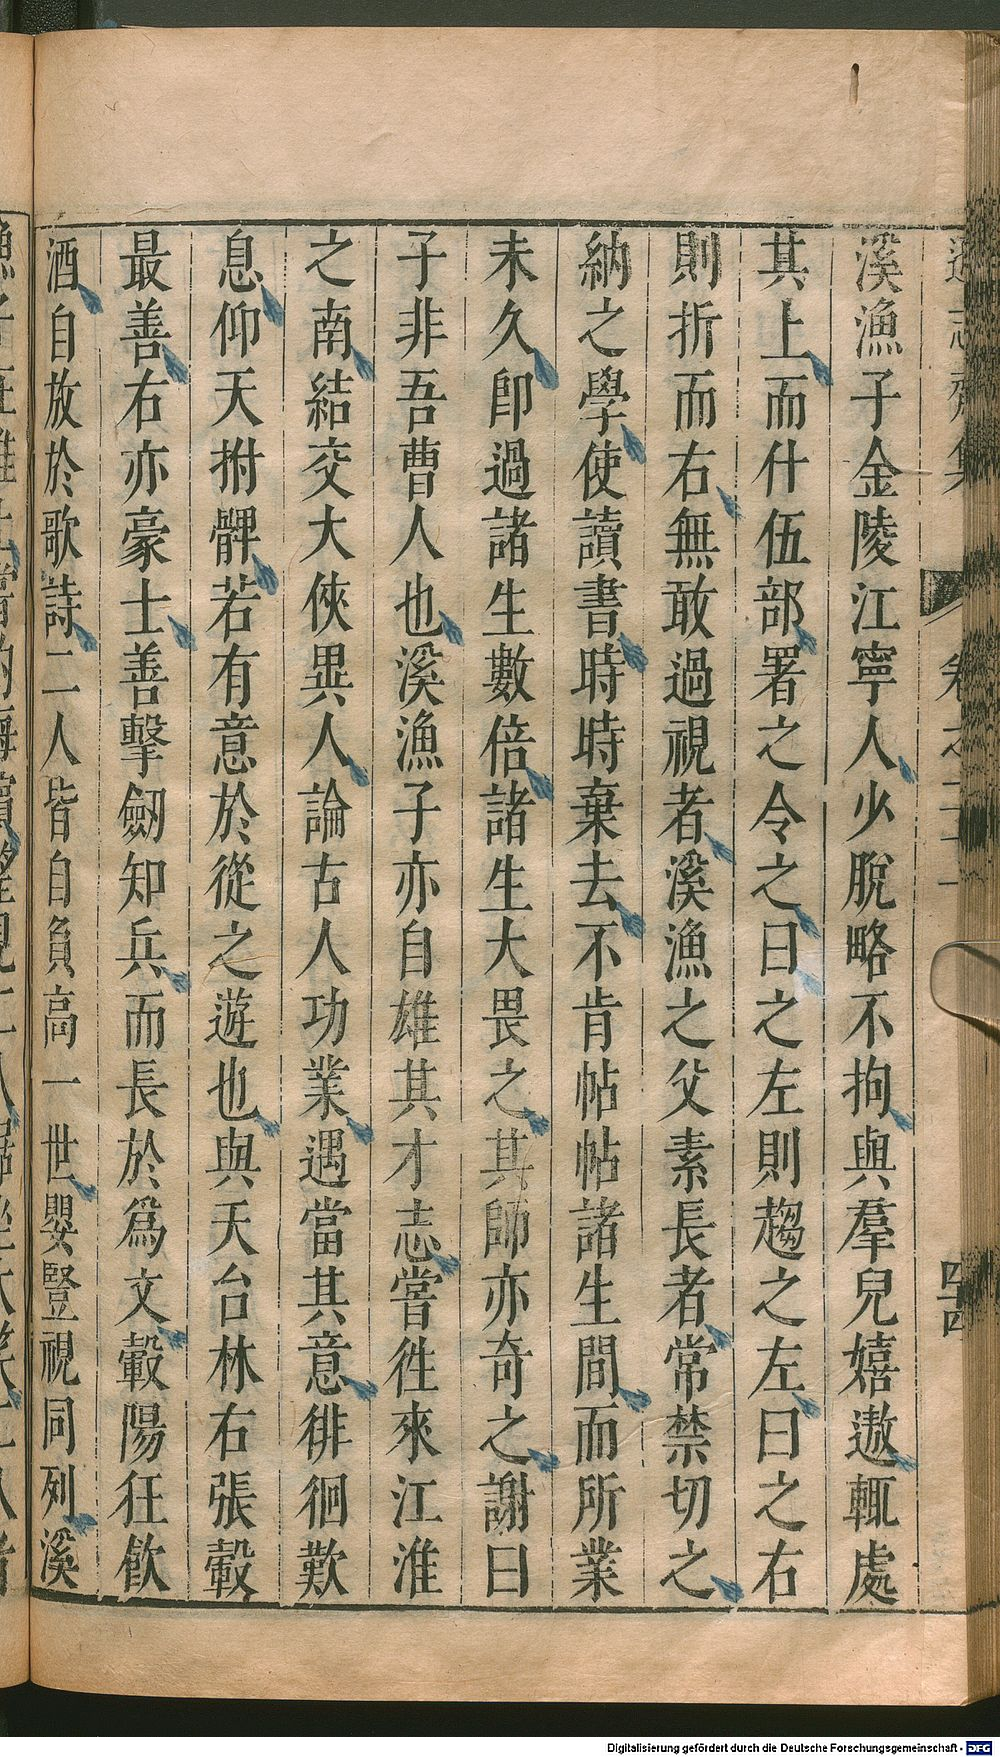 遜志齋集 卷之二十一 四十四
溪漁子金陵江寧人少脫略不拘與羣兒嬉遨輒處
其上而什伍部署之令之曰之左則趨之左曰之右
則折而右無敢過視者溪漁之父素長者常禁切之
納之學使讀書時時棄去不肯帖帖諸生間而所業
未久卽過諸生數倍諸生大畏之其師亦奇之謝曰
子非吾曹人也溪漁子亦自雄其才志嘗徃來江淮
之南結交大俠異人論古人功業遇當其意徘徊歎
息仰天拊髀若有意於從之遊也與天台林右張轂
最善右亦豪士善擊劒知兵而長於爲文轂陽狂飮
酒自放於歌詩二人皆自負高一世嬰豎視同列溪
Digitalisierung gefördert durch die Deutsche Forschungsgemeinschaft - DFG